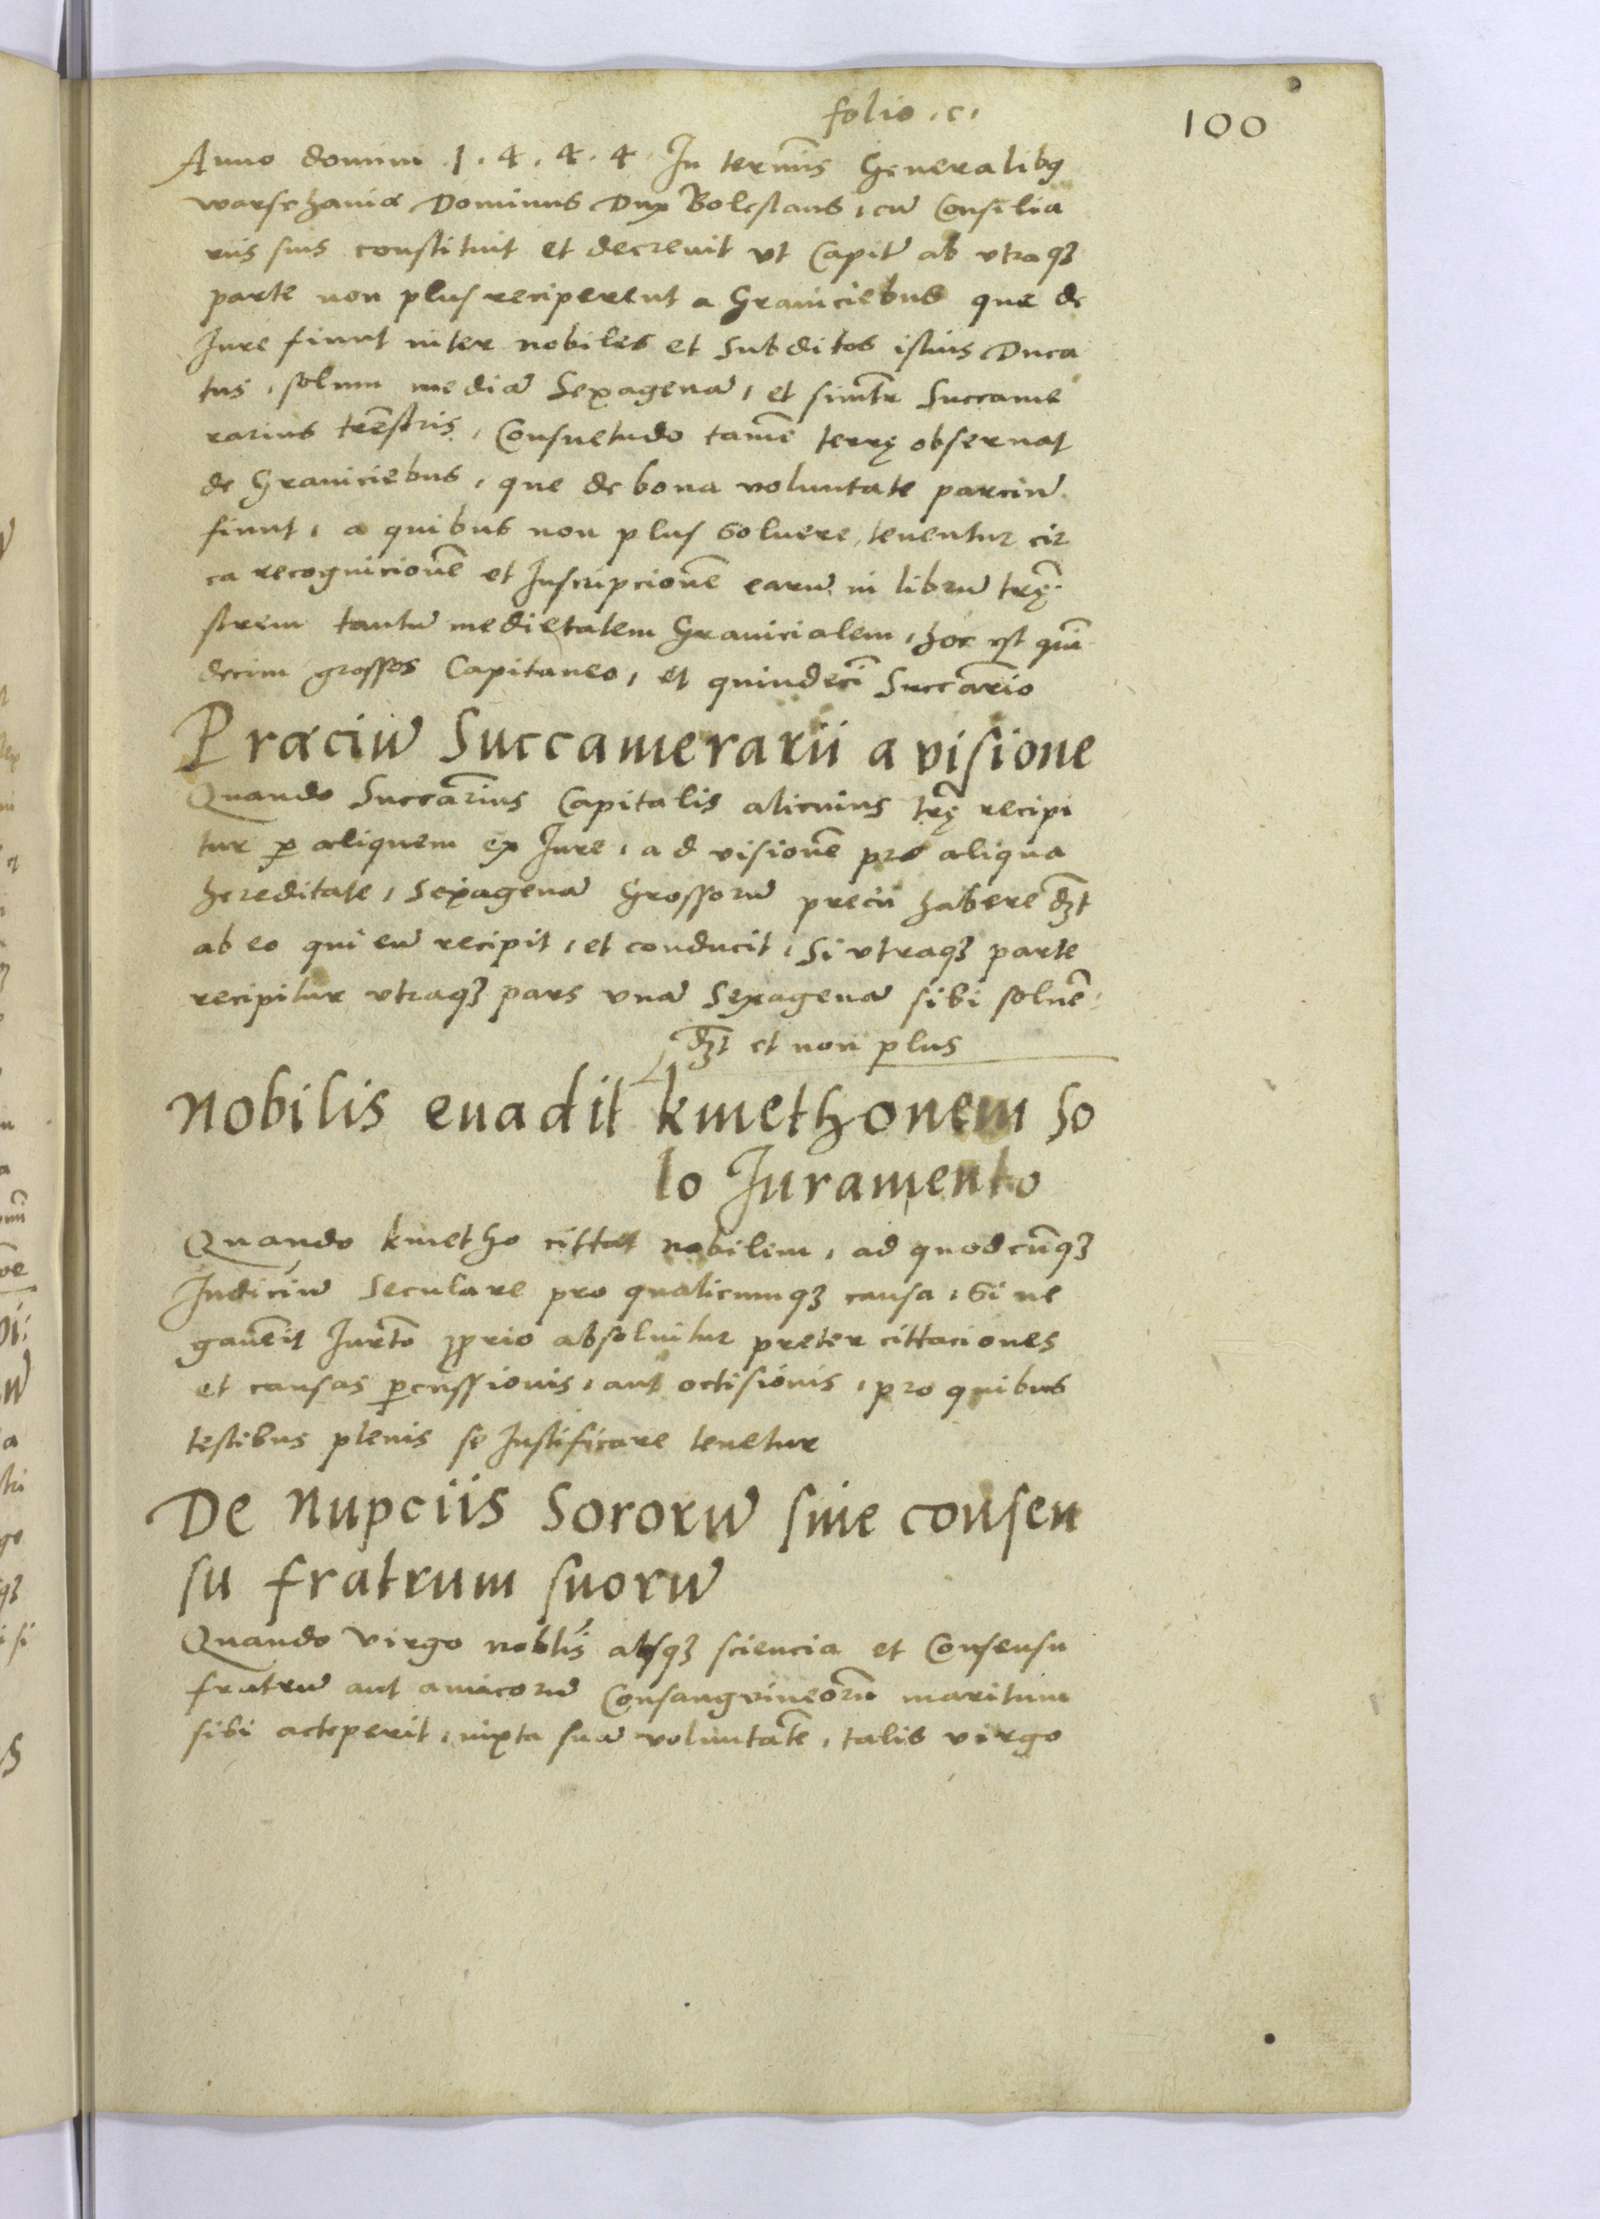 folio .c.
100
Anno domini .1.4.4.4 In terminis Generalibus
warschaviæ Dominus Dux Boleslaus, cu̅ Consilia
riis suis constituit et decrevit vt Capit̅ ab vtraqꝫ
parte non plus reciperent a Graniciebus que de
Iure fiunt inter nobiles et subditos istius Duca
tus, solum media̅ Sexagena̅, et simltr̅ Succame
rarius tre̅stris, Consuetudo tame̅ terrę observat
de Graniciebus, que de bona voluntate parciu̅
fiunt, a quibus non plus soluere, tenentur cir
ca recognicione̅ et Inscripcione̅ earu̅ in libru̅ tr̅ę
strem tantu̅ medietatem Granicialem, hoc est qui̅
decim grossos Capitaneo, et quindeci̅ Succa̅rio
Præciu̅ Succamerarii a visione
Quando Succa̅rius Capitalis alicuius tr̅ę recipi
tur ꝑ aliquem ex Iure, ad visione̅ pro aliqua
hereditate, Sexagena̅ Grossoru̅ precii habere dꝫt
ab eo qui eu̅ recipit, et conducit, Si vtraqꝫ parte
recipitur vtraqꝫ pars vna̅ Sexagena̅ sibi solue̅
dꝫt et non plus
Nobilis euadit kmethonem so
lo Iuramento
Quando kmetho cittat nobilem, ad quodcu̅qꝫ
Iudiciu̅ Seculare pro qualicumqꝫ causa, Si ne
gaue̅it Iurto̅ ꝓprio absoluitur preter cittaciones
et causas ꝑcussionis, aut octisionis, pro quibus
testibus plenis se Iustificare tenetur
De Nupciis Sororu̅ sine consen
su fratrum suoru̅
Quando virgo nobl̅is absqꝫ sciencia et Consensu
fratru̅ aut amicoru̅ Consanguineoru̅ maritum
sibi acteperit, iuxta sua̅ volunta̅te, talis virgo